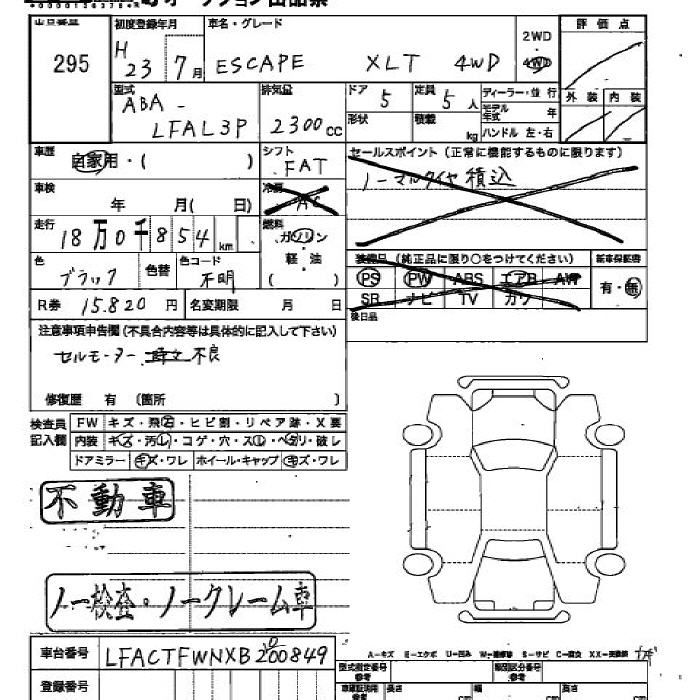 オークション出品票
出品番号 初度登録年月 車名・グレード 2WD 評価点
295 H 23 7月 ESCAPE XLT 4WD 4WD
型式 排気量 ドア 定員 ディーラー・並行 外装 内装
ABA- 5 5人 モデル年式 年
LFAL3P 2300cc 形状 積載 kg ハンドル 左・右
車歴 シフト セールスポイント(正常に機能するものに限ります)
自家用・( ) FAT ノーマルタイヤ積込
車検 冷房
年 月( 日) AC
走行 18万0千854km 燃料 ガソリン・軽油 ( )
装備品(純正品に限り○をつけてください) 新車保証書
PS PW ABS エアB AW 有・無
SR ナビ TV カワ
色 ブラック 色替 色コード 不明
R券 15.820円 名変期限 月 日 後日品
注意事項申告欄(不具合内容等は具体的に記入して下さい)
セルモーター 不良
修復歴 有 (箇所 )
検査員記入欄 FW キズ・飛石・ヒビ割・リペア跡・X要
内装 キズ・汚レ・コゲ・穴・スレ・ヘタリ・破レ
ドアミラー キズ・ワレ ホイール・キャップ キズ・ワレ
不動車
ノー検査・ノークレーム車
A-キズ E-エクボ U-凹み W-補修跡 S-サビ C-腐食 XX-交換済
車台番号 LFACTFWNXB200849 型式指定番号 参考 類別区分番号 参考
登録番号 車庫証明用 参考 長さ cm 幅 cm 高さ cm